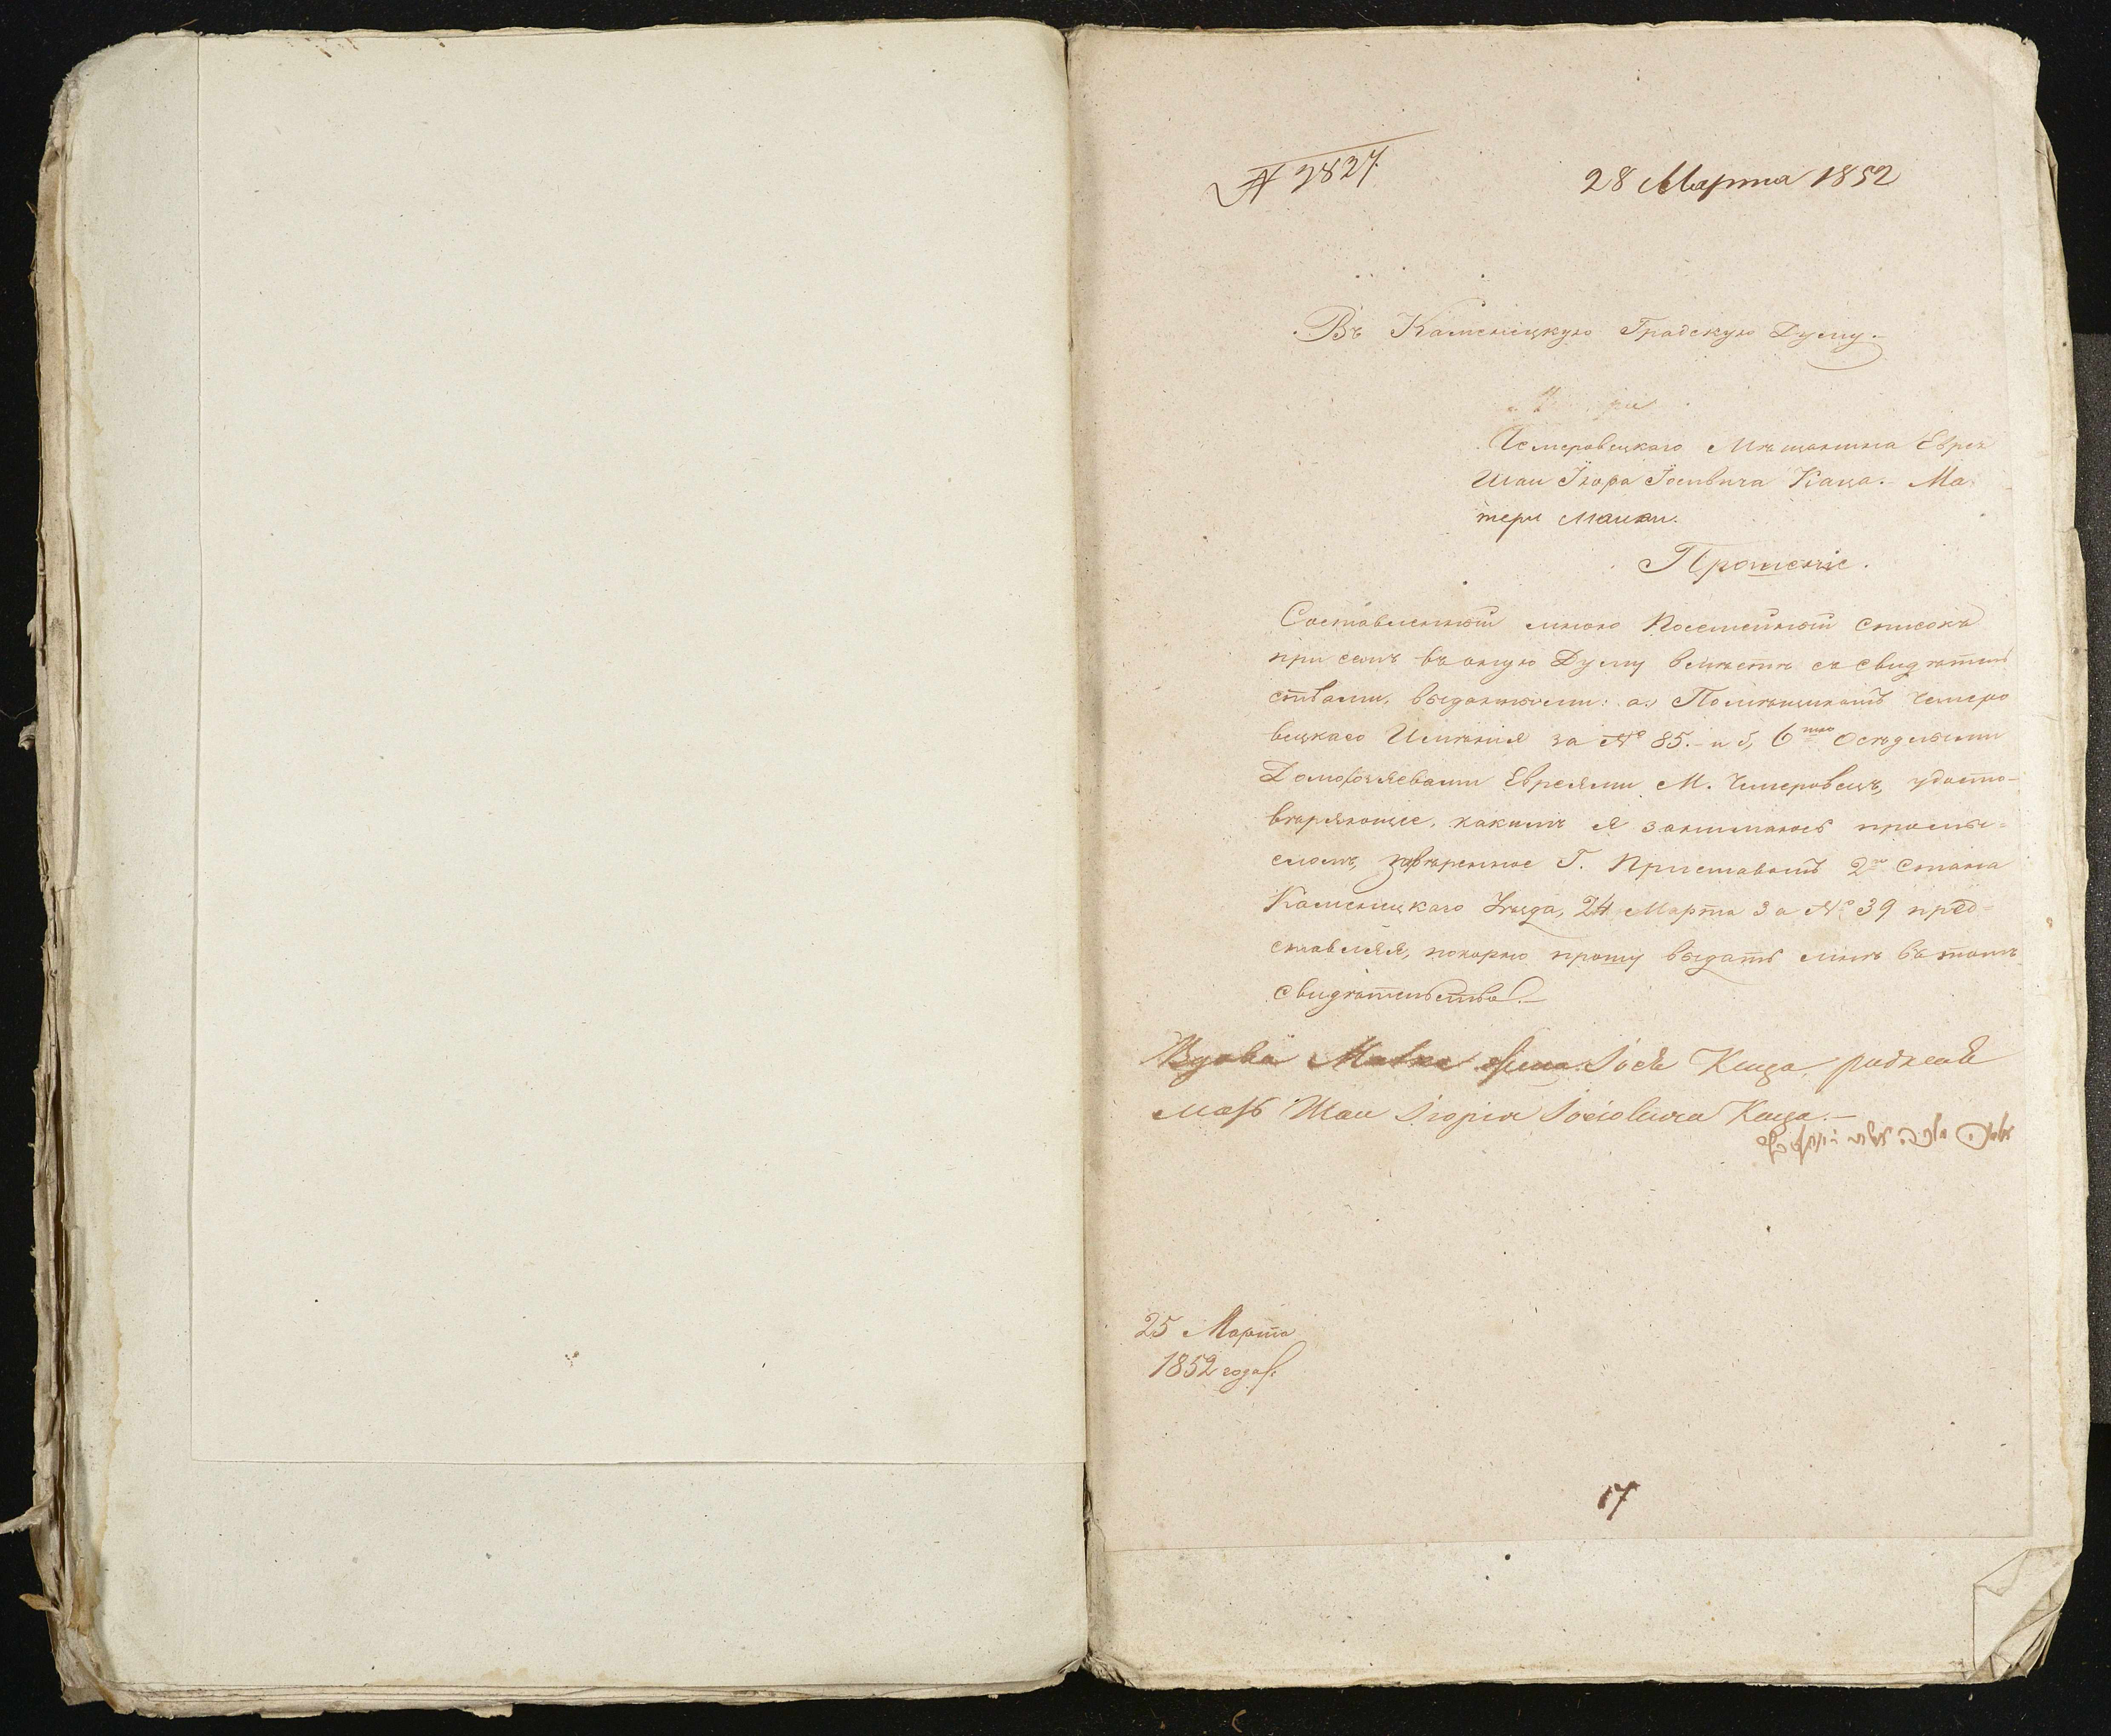 № 2827
28 Марта 1852
Въ Каменецкую Градскую Думу.
Чемеровецкаго Мѣщанина Еврея
Шаи Іюра Іосевича Каца. Ма
тери Малки.
Прошеніе.
Составленный мною Посемейный списокъ
при семъ въ оную Думу вмѣстѣ съ свидѣтель
ствами, выданными: а, Помѣщикомъ Чемеро
вецкаго Имѣнія за № 85.- и б, 6тью Осѣдлыми
Домохозяевами Евреями М. Чемеровецъ, удосто-
вѣряющіе, какимъ я занимаюсь промы=
сломъ, завѣренное Г. Приставомъ 2го Стана
Каменецкаго Уѣзда, 24 Марта за № 39 пред-
ставляя, покорно прошу выдать мнѣ въ томъ
свидѣтельство.-
Вдова Малка Іося Каца, родная
мать Шаи Каца.-
25 Марта
1852 года.
17